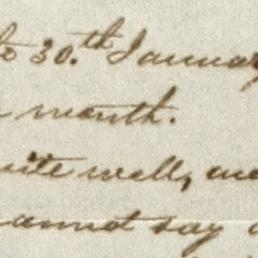 to 30.th January
month.
quite well, and
cannot say